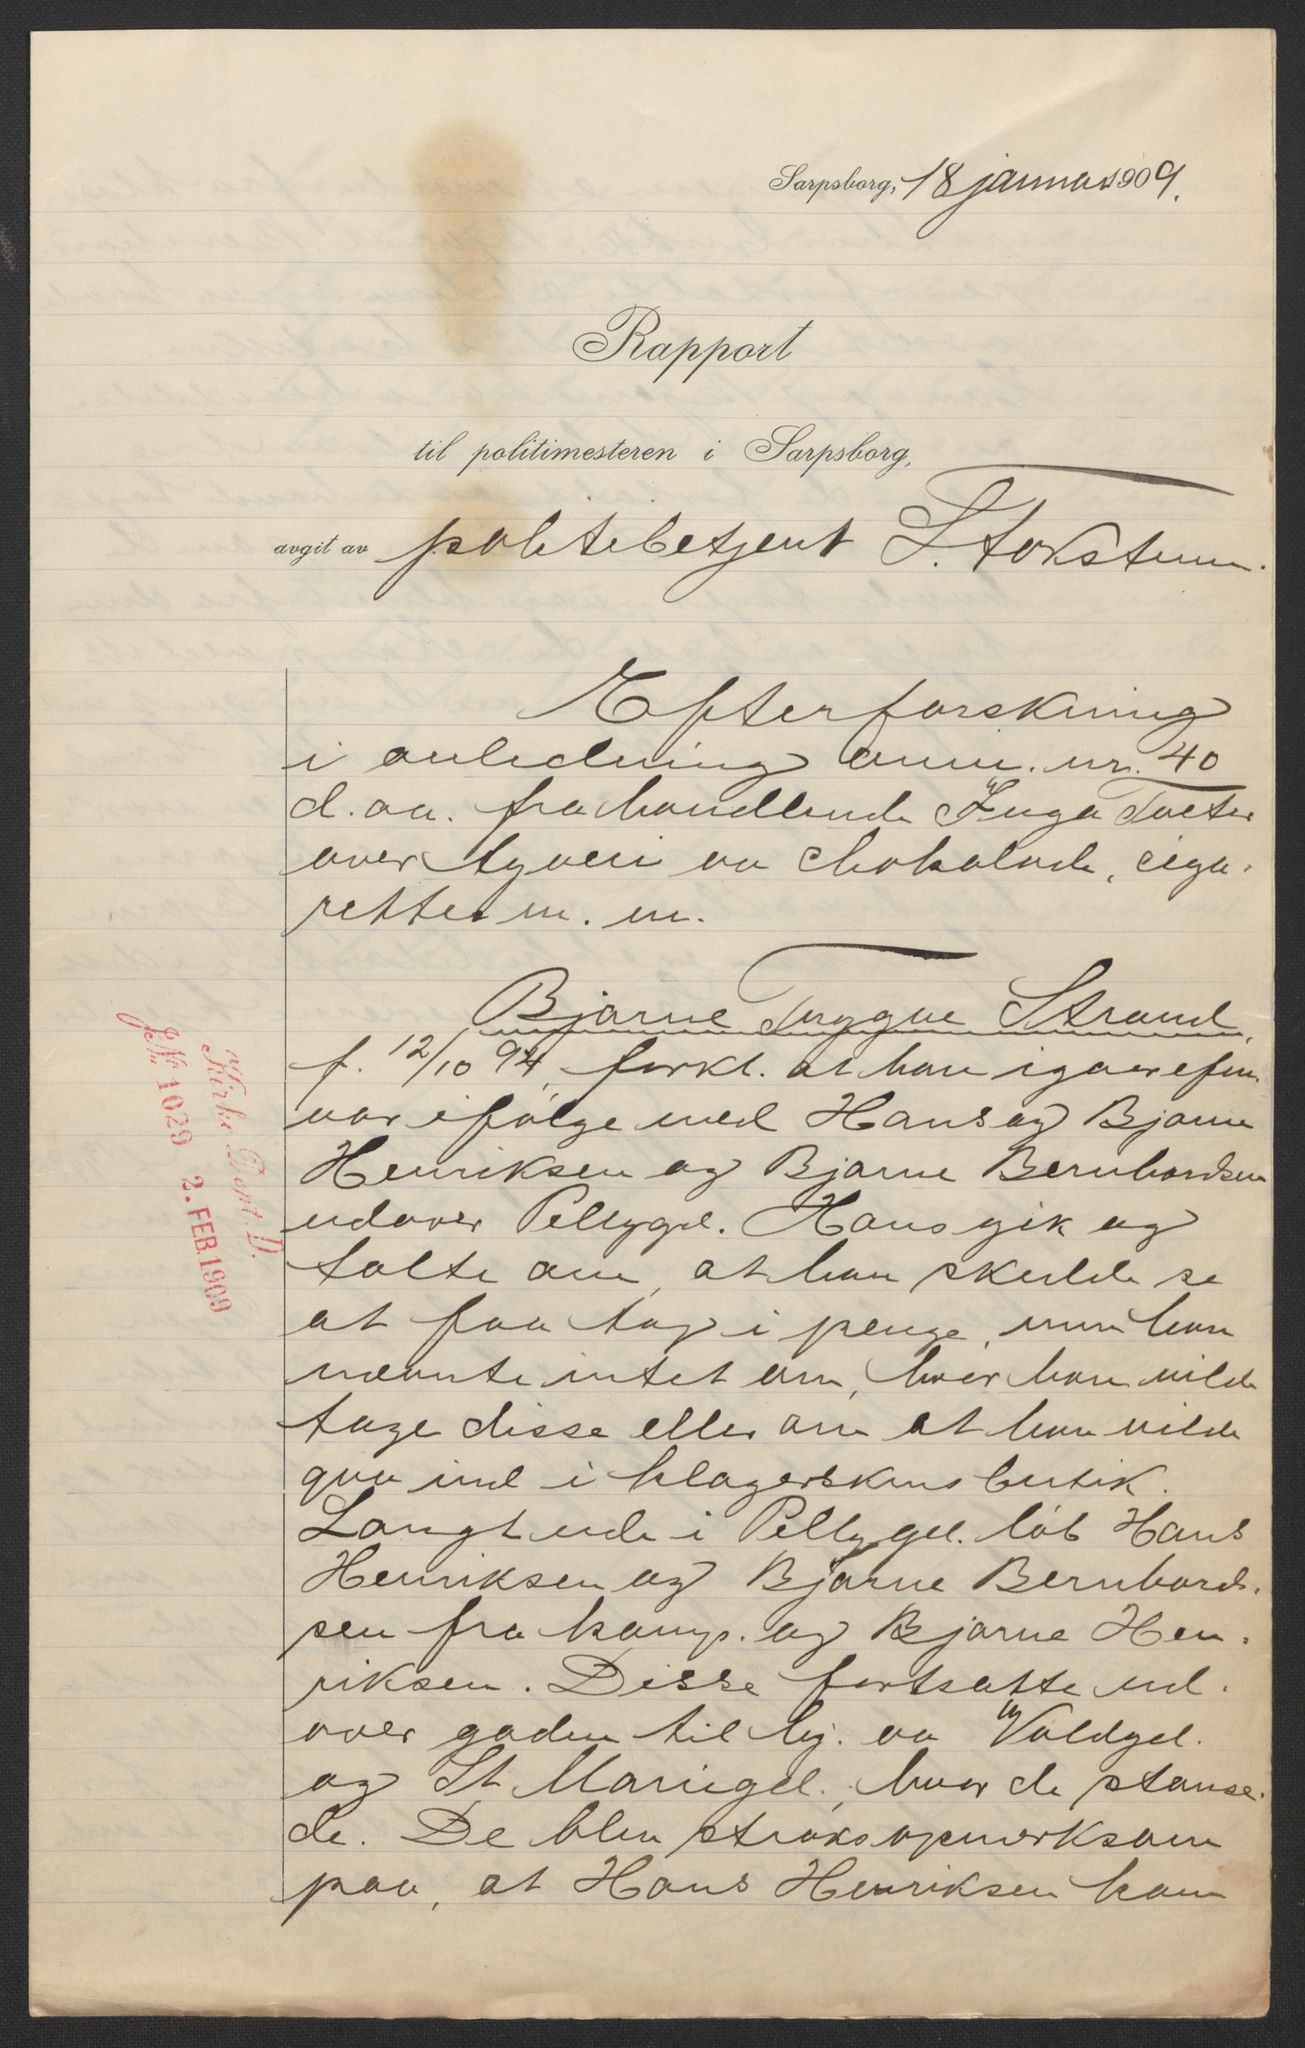 Sarpsborg, 18 januar 1909.
Rapport
til politimesteren i Sarpsborg,
avgit av politibetjent T. Stokstrum.
Efterforskning
i anledning anm. nr. 40
d. aa. fra handlende Inga Tveter
over tyveri av chokolade, ciga-
retter m. m.
Bjarne Trygve Strand,
f. 12/10 94, forkl. at han igaar efm.
var ifølge med Hans og Bjarne
Henriksen og Bjarne Bernhardsen
udover Pellygd. Hans gik og
talte om, at han skulde se
at faa tag i penge, men han
nævnte intet om, hvor han vilde
tage disse eller om at han vilde
gaa ind i klagerskens butik.
Langt ude i Pellygd. løb Hans
Henriksen og Bjarne Bernhard-
sen fra komp. og Bjarne Hen-
riksen. Disse fortsatte ud-
over gaden til hj. av Voldgd.
og St Mariegd., hvor de stanse-
de. De blev straks opmerksom
paa, at Hans Henriksen kom
Kirke Dept. D.
J№ 1029 2. FEB. 1909